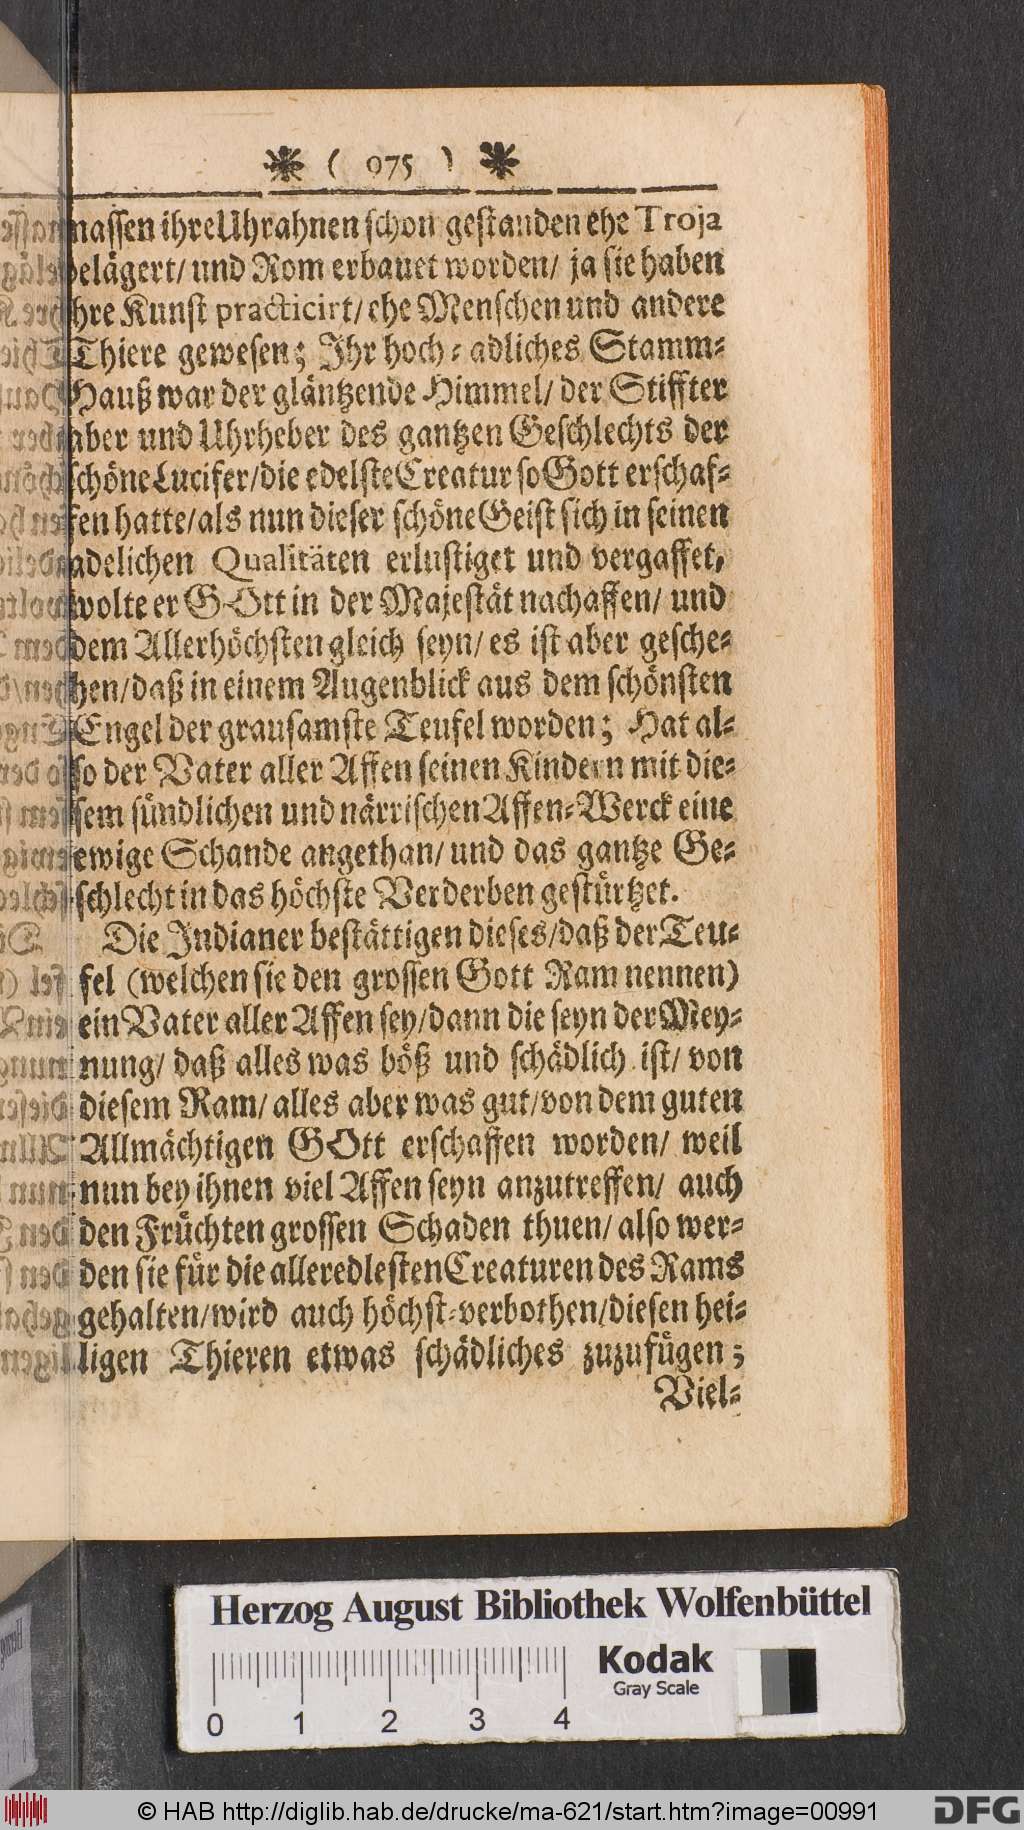 ( 975 )
massen ihre Uhrahnen schon gestanden ehe Troja
belägert/ und Rom erbauet worden/ ja sie haben
ihre Kunst practicirt/ ehe Menschen und andere
Thiere gewesen; Ihr hoch-adliches Stamm-
Hauß war der gläntzende Himmel/ der Stiffter
aber und Uhrheber des gantzen Geschlechts der
schöne Lucifer/ die edelste Creatur so Gott erschaf-
fen hatte/ als nun dieser schöne Geist sich in seinen
adelichen Qualitäten erlustiget und vergaffet,
wolte er GOtt in der Majestät nachaffen/ und
dem Allerhöchsten gleich seyn/ es ist aber gesche-
hen/ daß in einem Augenblick aus dem schönsten
Engel der grausamste Teufel worden; Hat al-
so der Vater aller Affen seinen Kindern mit die-
sem sündlichen und närrischen Affen-Werck eine
ewige Schande angethan/ und das gantze Ge-
schlecht in das höchste Verderben gestürtzet.
Die Indianer bestättigen dieses/ daß der Teu-
fel (welchen sie den grossen Gott Ram nennen)
ein Vater aller Affen sey/ dann die seyn der Mey-
nung/ daß alles was böß und schädlich ist/ von
diesem Ram/ alles aber was gut/ von dem guten
Allmächtigen GOtt erschaffen worden/ weil
nun bey ihnen viel Affen seyn anzutreffen/ auch
den Früchten grossen Schaden thuen/ also wer-
den sie für die alleredlesten Creaturen des Rams
gehalten/ wird auch höchst-verbothen/ diesen hei-
ligen Thieren etwas schädliches zuzufügen;
Viel-
Herzog August Bibliothek Wolfenbüttel
Kodak
Gray Scale
0 1 2 3 4
© HAB http://diglib.hab.de/drucke/ma-621/start.htm?image=00991
DFG